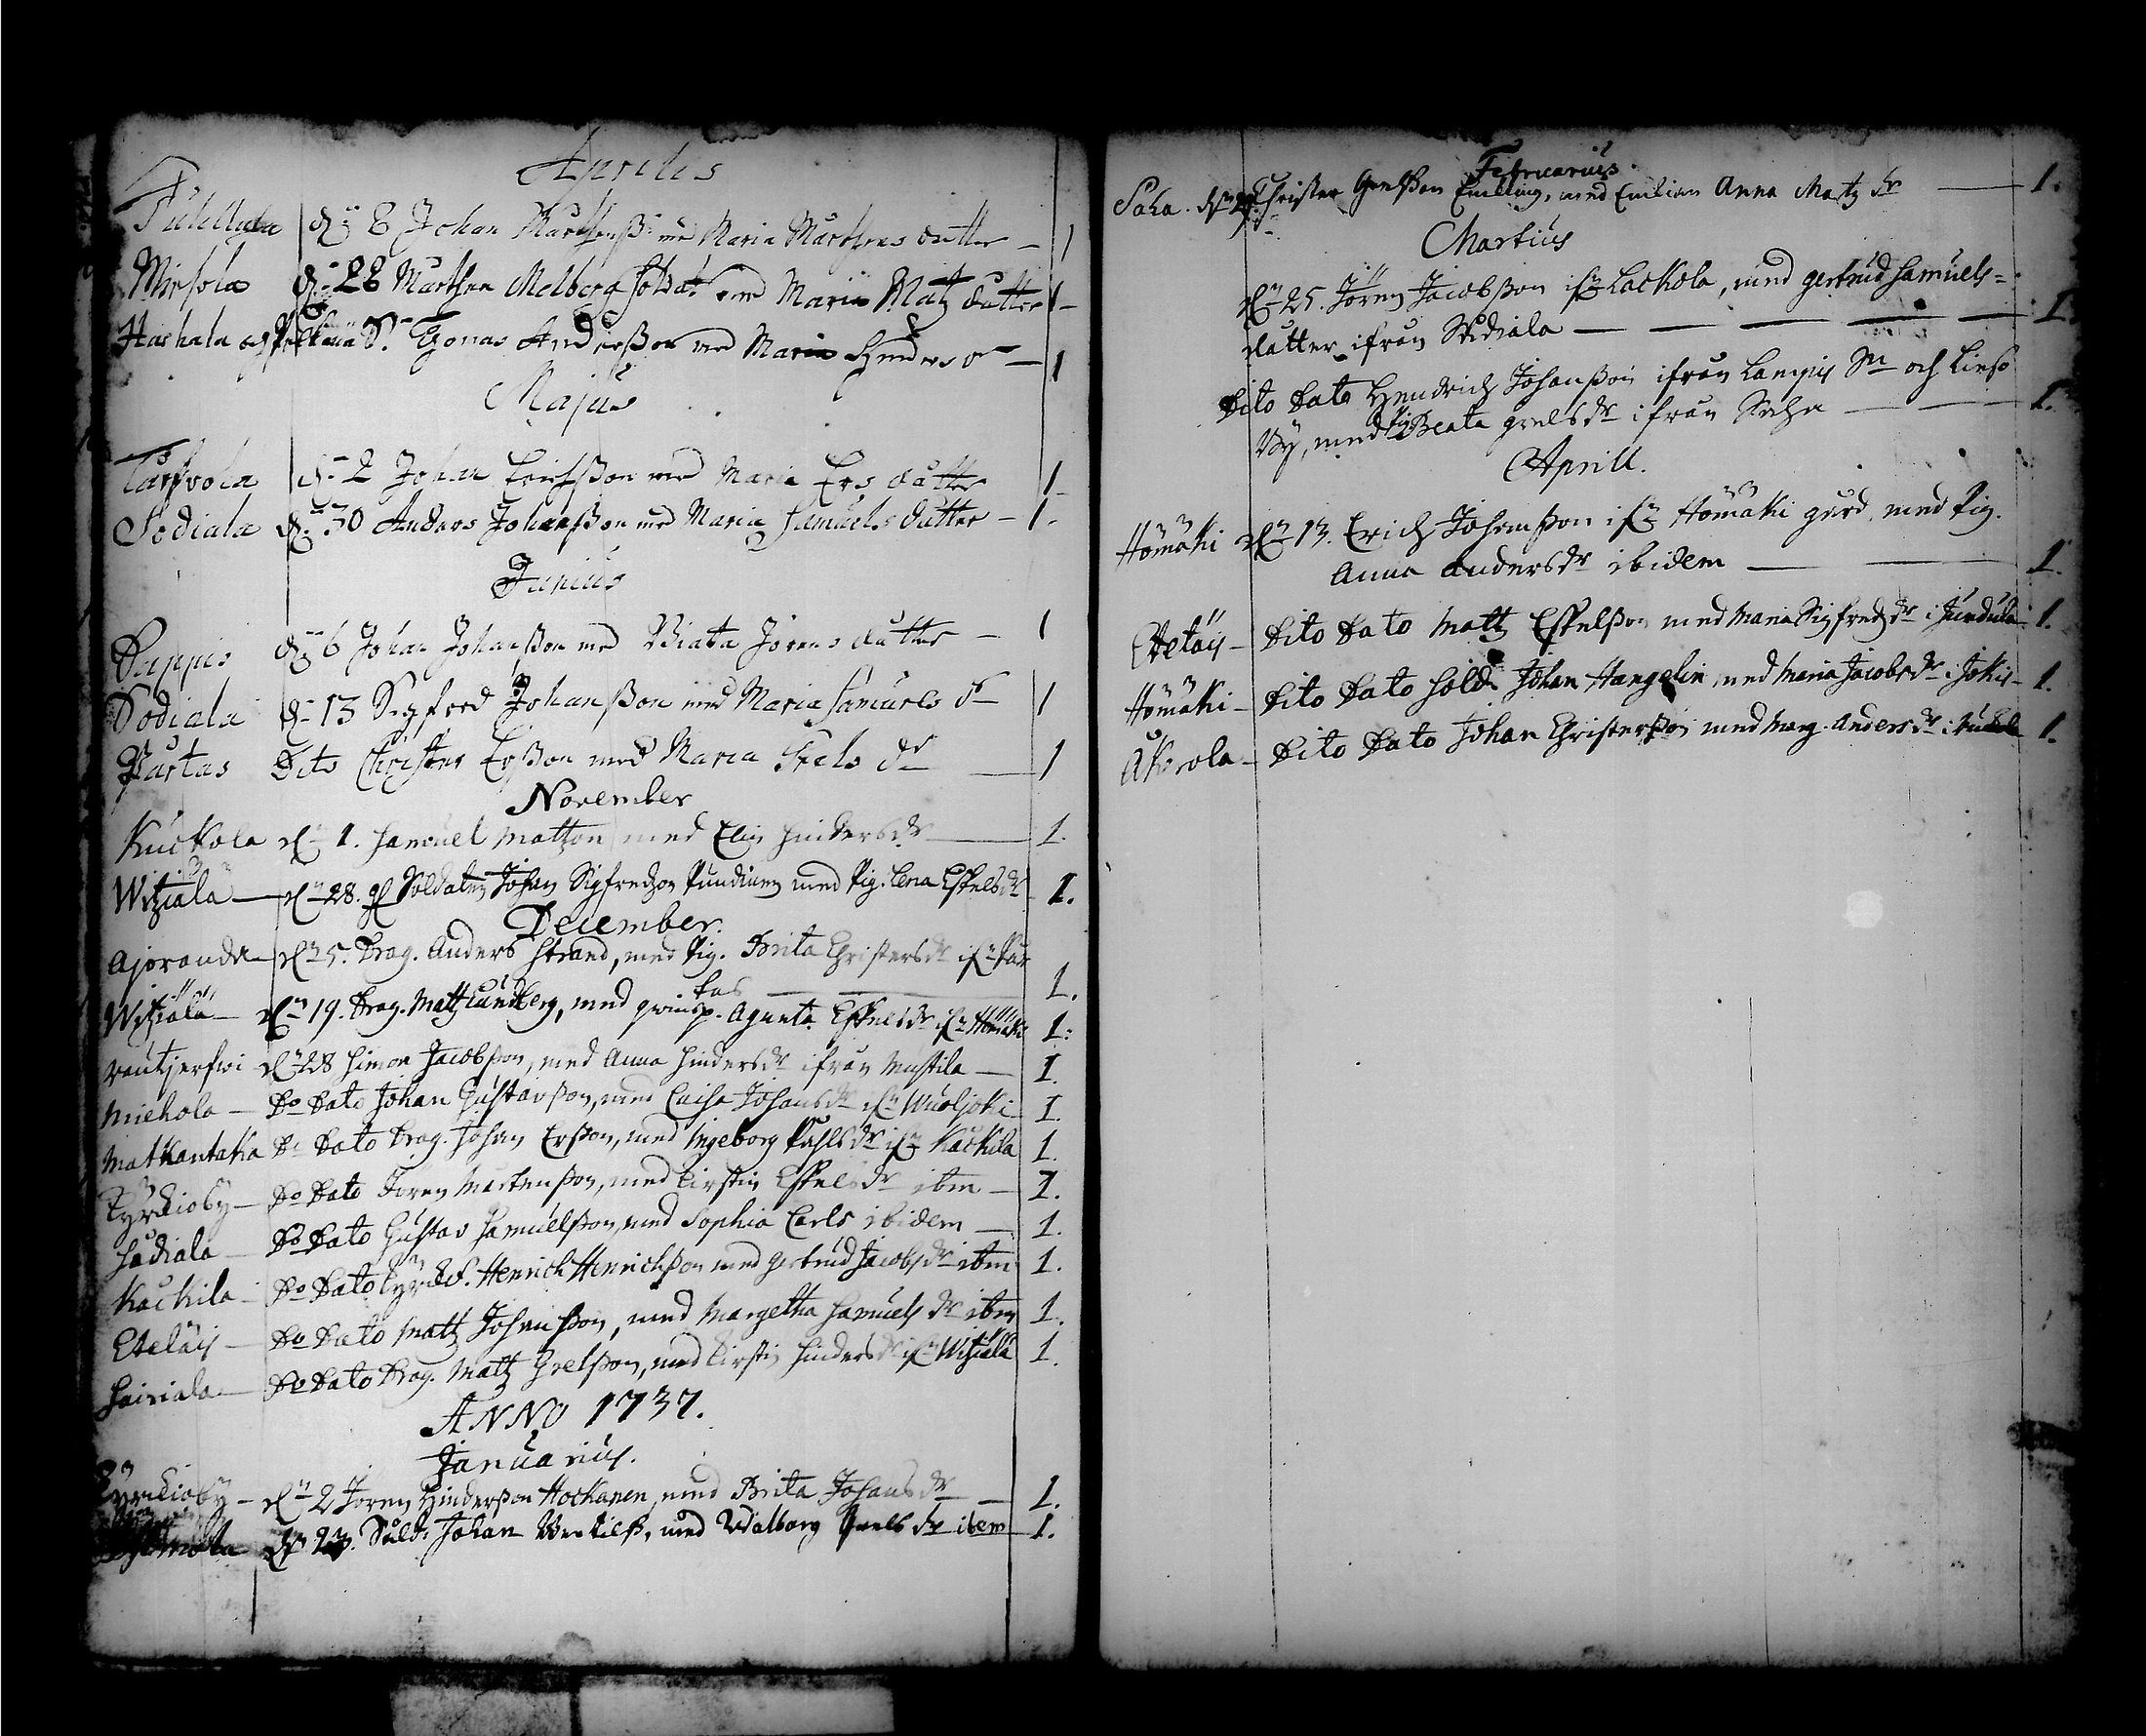 Aprilis
d. 8 Johan Marthenß: med Maria Marthens dutter — 1
Mirsola d. 28 Marthen Melberg Soldat med Maria Matz dutter 1
Haskala S. Tomas Anderßon med Maria Hinders d — 1
Majus
Tarfvola d. 2 Johan Erichßon med Maria Ers dutter 1
Sodiala d. 30 Anders Johanßon med Maria Samuels dutter — 1.
Junius
Seppis d. 6 Johan Johanßon med Biata Jörens dutter — 1
Sodiala d. 13 Sigfred Johanßon med Maria Samuels d 1
Partas Dito Christer Erßon med Maria d 1
November
Kuckola d. 1. Samuel Matzon med Elin Hindersdr 1.
Witziala — d. 28. Soldaten Johan Sigfredzon Pundinen med Pig. Lena Eskelsdr 1.
December.
Ajoranda d. 5. Drag. Anders Strand, med Pig. Brita Christersdr ifn Par
tas 1.
Witziala — d. 19. Drag. Matz Lundberg, med qwinsp. Agneta Eskelsdr ifn Hömäki 1.
Rautjerfwi d. 28 Simon Jacobßon, med Anna Hindersdr ifrån Mustila — 1.
Miehola — Do Dato Johan Gustavßon, med Caisa Johansdr ifn Wuoljoki 1.
Matkantaka Do Dato Drag. Johan Erßon, med Ingeborg Påhlsdr ifn Kackila 1.
Kyrckioby — Do Dato Jören Mårtenßon, med Kirstin Eskelsdr ibm — 1.
Sådiala — Do Dato Gustav Samuelßon, med Sophia Carls ibidem — 1.
Kackila — Do Dato Henrich Henrichßon med Gertrud Jacobsdr ibm 1.
Eteläis — Do Dato Matz Johanßon, med Margetha Samuelsdr ibm 1.
Sairiala — Do Dato Drag. Matz Grelßon, med Kirstin Hindersdr ifn Witziala 1.
ANNO 1737.
Januarius.
Kyrckioby — d. 2 Jören Hinderßon Hockanen, med Brita Johansdr — 1.
d. Sold. Johan Bertilß, med Walborg dr ibem 1.
Februarius.
Saha. Christer Grelßon Enckling, med Enckian Anna Matz dr — 1.
Martius
den 25. Jören Jacobßon ifn Lackola, med Gertrud Samuels=
dutter ifrån Sådiala — — — — — 1.
Dito Dato Hendrich Johanßon ifrån Lampis Sn och Lieso
By, med Pig Beata Grelsdr ifrån Saha — — 1.
Aprill.
Hömäki den 13. Erich Johanßon ifn Hömäki gård, med Pig.
Anna Andersdr ibidem — — 1.
Eteläis — Dito Dato Matz Eskelßon med Maria Sigfredzdr i 1.
Hömäki — Dito Dato Sold. Johan Hangelin med Maria Jacobsdr i Jokis — 1.
Dito Dato Johan Christerßon med Marg. Andersdr i 1.